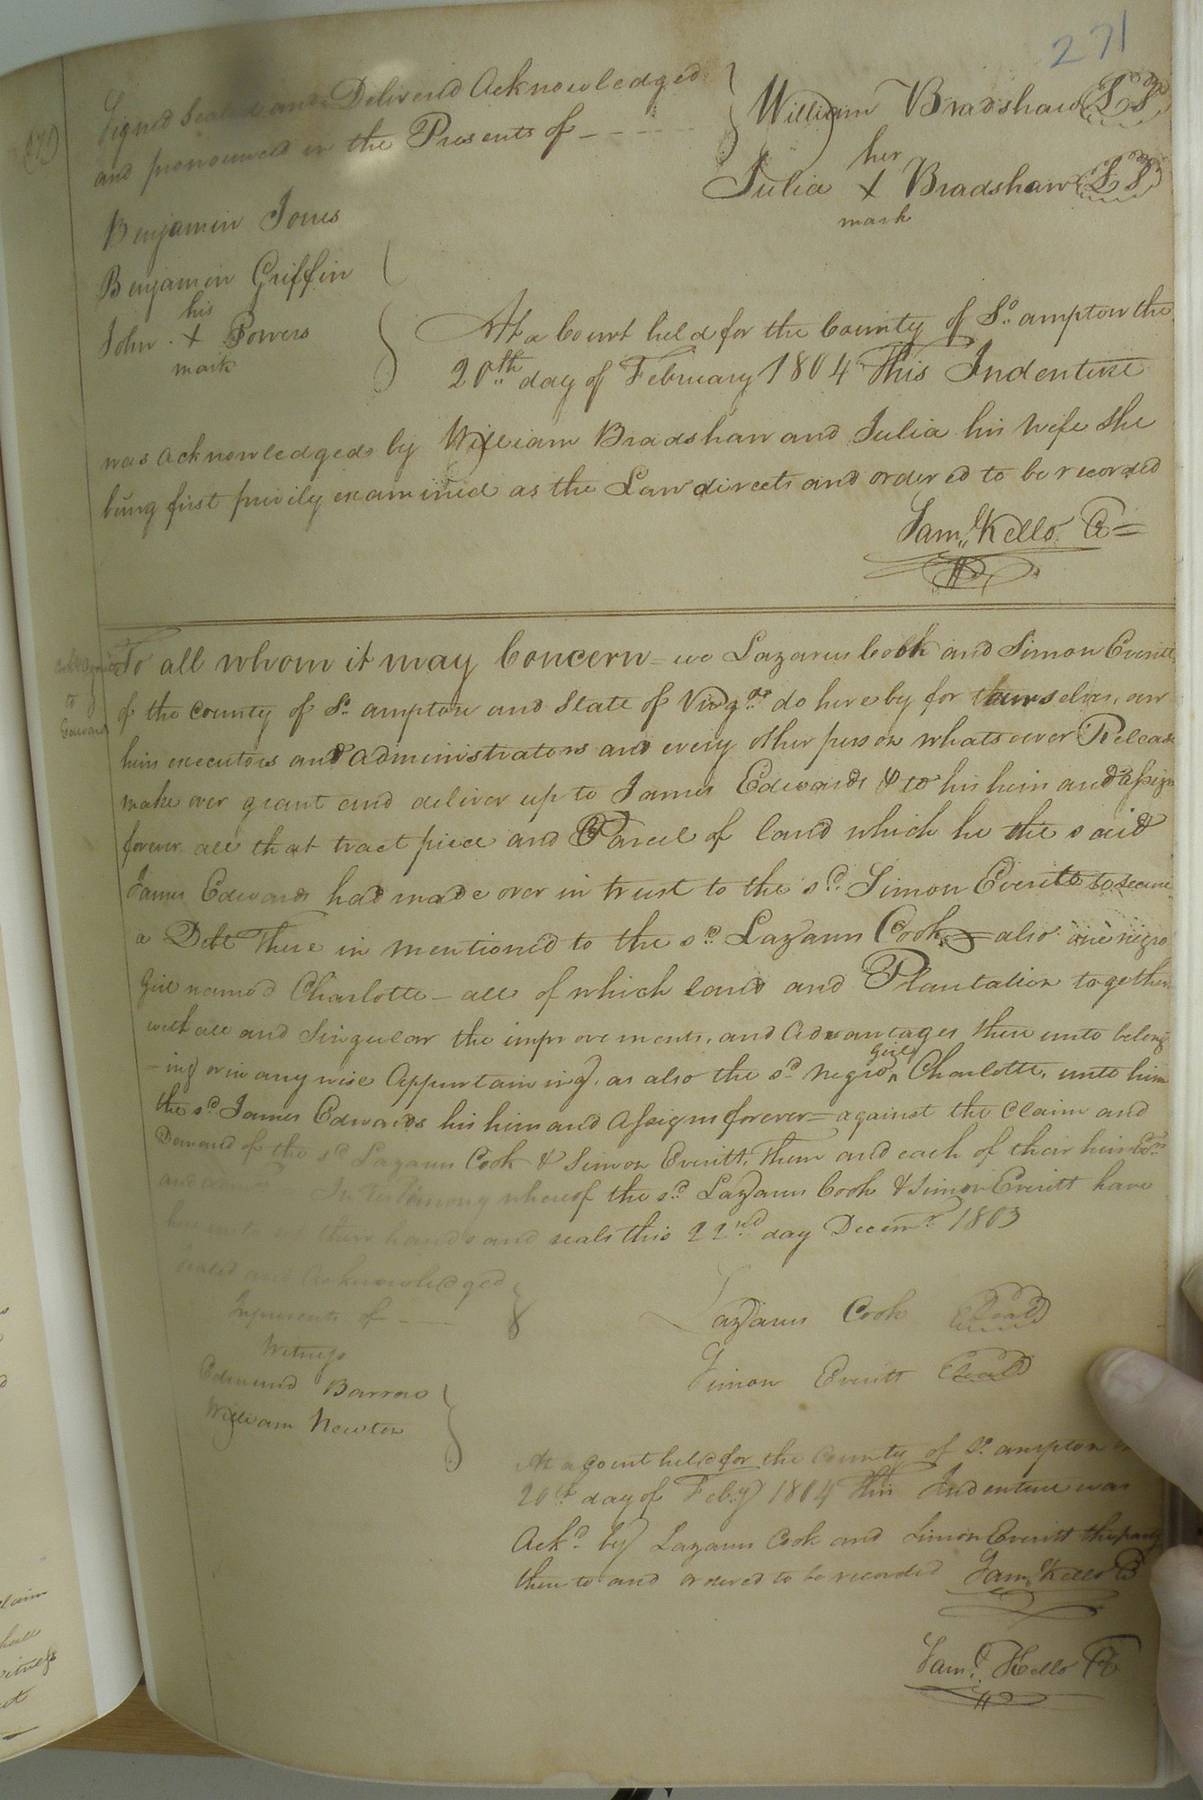 271
Signed Sealed and Deliverd Acknowledged
and pronounced in the Presents of
William Bradshaw LS
her
Julia X Bradshaw LS
mark
Benjamin Jones
Benjamin Griffin
his
John X Powers
mark
At a Court held for the County of So. ampton the
20th day of February 1804 This Indenture
was acknowledged by William Bradshaw and Julia his wife she
being first privily examined as the Law directs and ordered to be recorded
Saml. Kello Ct
to
Edwards
To all whom it may Concern we Lazarus Cook and Simon Everitt
of the County of So. ampton and State of Virga. do hereby for ourselves, our
heirs executors and administrators and every other person whatsoever Release
make over grant and deliver up to James Edwards & to his heirs and assigns
forever all that tract piece and Parcel of land which he the said
James Edwards had made over in trust to the sd. Simon Everitt to secure
a Debt There in mentioned to the sd. Lazarus Cook also one negro
Girl named Charlotte all of which land and Plantation together
with all and Singular the improvements, and advantages there unto belong
-ing or in any wise Appurtaining, as also the sd negro Girl Charlotte, unto him
the sd James Edwards his heirs and assigns forever = against the Claim and
Demand of the sd Lazarus Cook & Simon Everitt, them and each of their heirs Exrs
and admrs In Testimony whereof the sd. Lazarus Cook & Simon Everitt have
hereunto set their hands and seals this 22nd day Decemr. 1803
Sealed and Acknowledged
In presents of
Witness
Edmund Barrow
William Newton
Lazarus Cook Seal
Simon Everitt Seal
At a Court held for the County of So. ampton
20th day of Feby 1804 This Indenture was
Ackd. by Lazarus Cook and Simon Everitt the party
there to and ordered to be recorded Saml. Kello C
Saml. Kello Ct